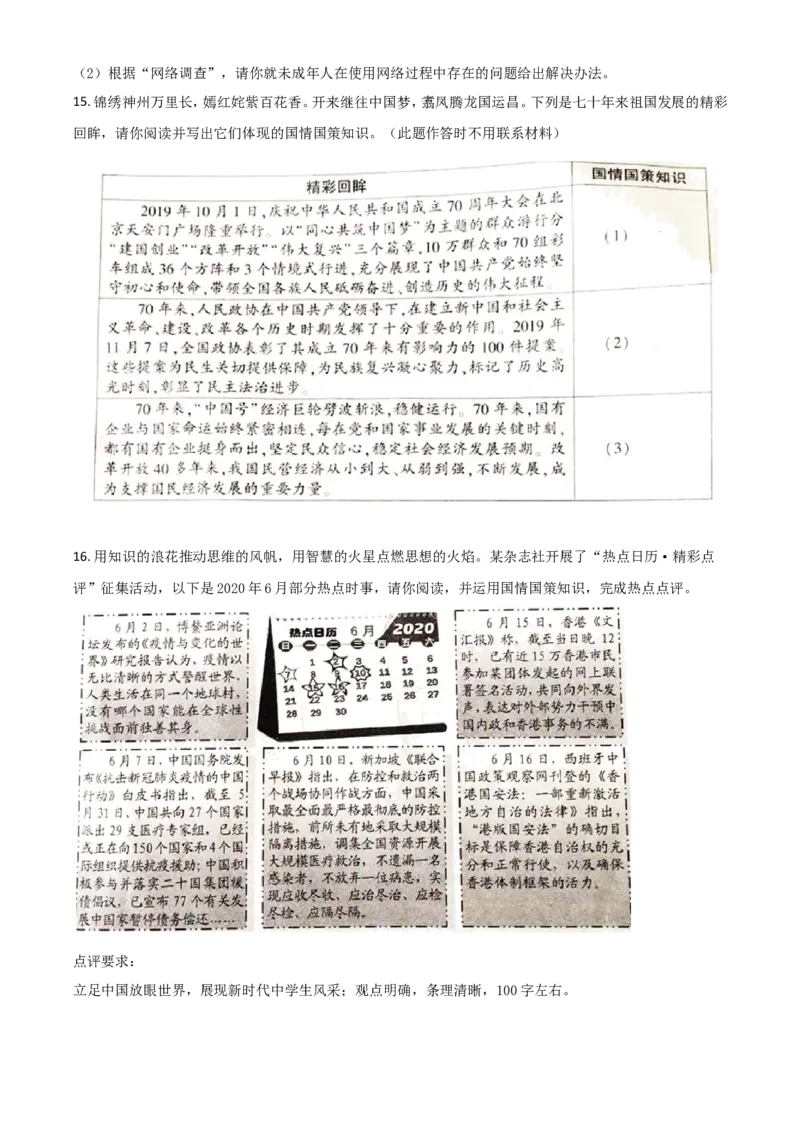 （2）根据“网络调查”，请你就未成年人在使用网络过程中存在的问题给出解决办法。
15. 锦绣神州万里长，嫣红姹紫百花香。开来继往中国梦，翥凤腾龙国运昌。下列是七十年来祖国发展的精彩
回眸，请你阅读并写出它们体现的国情国策知识。（此题作答时不用联系材料）
精彩回眸
国情国策知识
2019年10月1日，庆祝中华人民共和国成立70周年大会在北
京天安门广场隆重举行。以“同心共筑中国梦”为主题的群众游行分
“建国创业”“改革开放”“伟大复兴”三个篇章，10万群众和70组彩
车组成36个方阵和3个情境式行进，充分展现了中国共产党始终坚
守初心和使命，带领全国各族人民砥砺奋进、创造历史的伟大征程。
（1）
70年来，人民政协在中国共产党领导下，在建立新中国和社会主
义革命、建设、改革各个历史时期发挥了十分重要的作用。2019年
11月7日，全国政协表彰了其成立70年来有影响力的100件提案。
这些提案为民生关切提供保障，为民族复兴凝心聚力，标记了历史高
光时刻，彰显了民主法治进步。
（2）
70年来，“中国号”经济巨轮劈波斩浪，稳健运行。70年来，国有
企业与国家命运始终紧密相连，每在党和国家事业发展的关键时刻，
都有国有企业挺身而出，坚定民众信心，稳定社会经济发展预期。改
革开放40多年来，我国民营经济从小到大、从弱到强，不断发展，成
为支撑国民经济发展的重要力量。
（3）
16. 用知识的浪花推动思维的风帆，用智慧的火星点燃思想的火焰。某杂志社开展了“热点日历·精彩点
评”征集活动，以下是2020年6月部分热点时事，请你阅读，并运用国情国策知识，完成热点点评。
6月2日，博鳌亚洲论
坛发布的《疫情与变化的世
界》研究报告认为，疫情以
无比清晰的方式警醒世界，
人类生活在同一个地球村，
没有哪个国家能在全球性
挑战面前独善其身。
热点日历 6月 2020
日 一 二 三 四 五 六
1 2 3 4 5 6
7 8 9 10 11 12 13
14 15 16 17 18 19 20
21 22 23 24 25 26 27
28 29 30
6月15日，香港《文
汇报》称，截至当日晚12
时，已有近15万香港市民
参加某团体发起的网上联
署签名活动，共同向外界发
声，表达对外部势力干预中
国内政和香港事务的不满。
6月7日，中国国务院发
布《抗击新冠肺炎疫情的中国
行动》白皮书指出，截至5
月31日，中国共向27个国家
派出29支医疗专家组，已经
或正在向150个国家和4个国
际组织提供抗疫援助；中国积
极参与并落实二十国集团缓
债倡议，已宣布77个有关发
展中国家暂停债务偿还……
6月10日，新加坡《联合
早报》指出，在防控和救治两
个战场协同作战方面，中国采
取最全面最严格最彻底的防控
措施，前所未有地采取大规模
隔离措施，调集全国资源开展
大规模医疗救治，不遗漏一名
感染者，不放弃一位病患，实
现应收尽收、应治尽治、应检
尽检、应隔尽隔。
6月16日，西班牙中
国政策观察网刊登的《香
港国安法：一部重新激活
地方自治的法律》指出，
“港版国安法”的确切目
标是保障香港自治权的充
分和正常行使，以及确保
香港体制框架的活力。
点评要求：
立足中国放眼世界，展现新时代中学生风采；观点明确，条理清晰，100字左右。